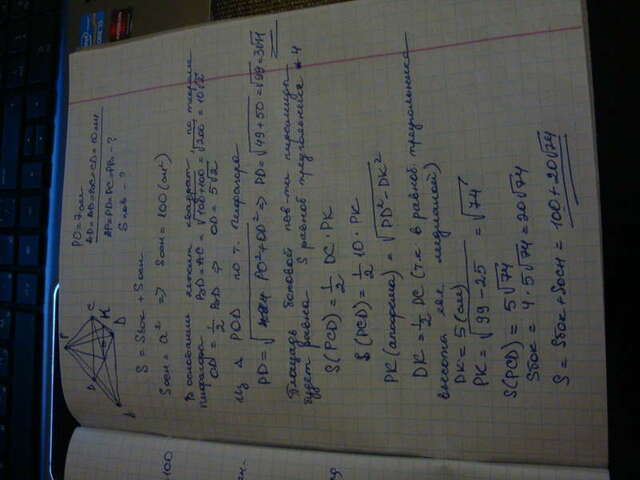 PO = 7 см
AD = AB = BC = CD = 10 см
AP = PD = PC = PB - ?
S пов - ?
P
B
C
K
D
S = Sбок + Sосн
Sосн = a² => Sосн = 100 (см²)
В основании лежит квадрат по теореме
Пифагора BD = AC = √100+100 = √200 = 10√2
OD = 1/2 BD => OD = 5√2
Из Δ POD по т. Пифагора
PD = √PO²+OD² => PD = √49+50 = √99 = 3√11
Площадь боковой пов-ти пирамиды
будет равна S равноб треугольника * 4
S(PCD) = 1/2 DC · PK
S(PCD) = 1/2 10 · PK
PK (апофема) = √PD² - DK²
DK = 1/2 DC (т.к. в равноб. треугольнике
высота явл. медианой)
DK = 5 (см)
PK = √99 - 25 = √74
S(PCD) = 5√74
Sбок = 4 · 5√74 = 20√74
S = Sбок + Sосн = 100 + 20√74
100